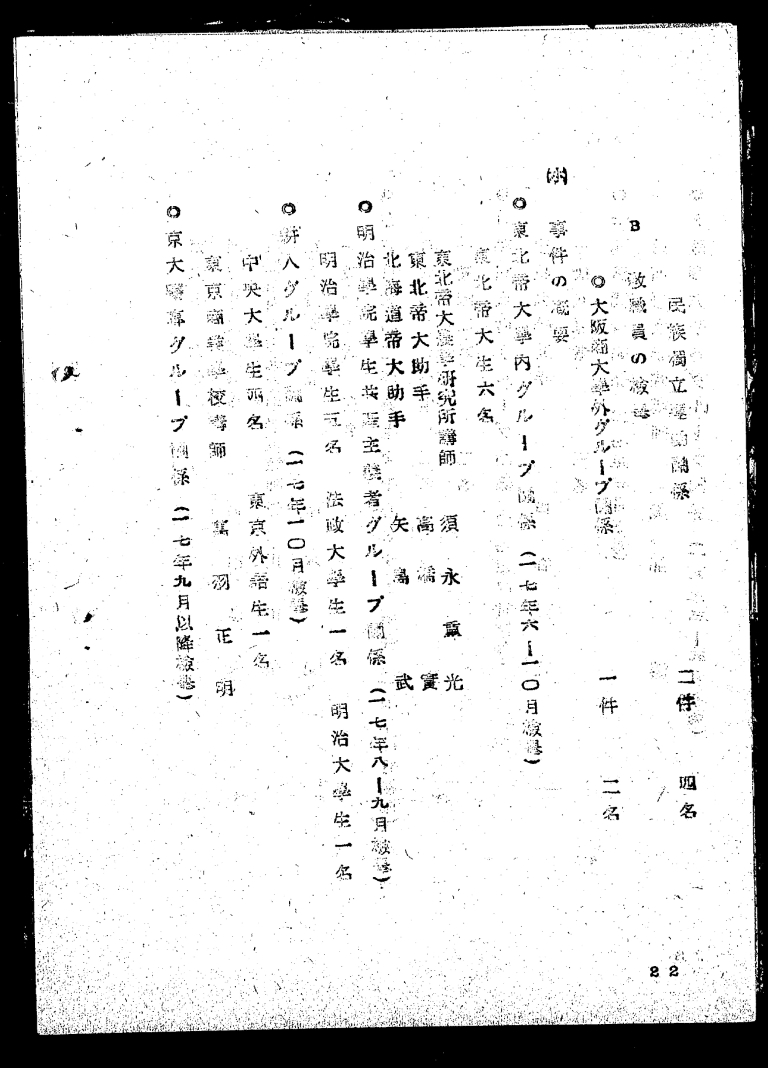 民族獨立運動關係　二件　四名
B　教職員の檢擧
◎大阪商大學外グループ關係　一件　二名
㈭　事件の概要
◎東北帝大學內グループ關係（一七年六ー一〇月檢擧）
東北帝大生六名
東北帝大選學研究所講師　須永重光
東北帝大助手　高橋實
北海道帝大助手　矢島武
◎明治學院學生共產主義者グループ關係（一七年八ー九月檢擧）
明治學院學生五名　法政大學生一名　明治大學生一名
◎耕人グループ關係（一七年一〇月檢擧）
中央大學生四名　東京外語生一名
東京　學校講師　羽正明
◎京大　グループ關係（一七年九月以降檢擧）
22